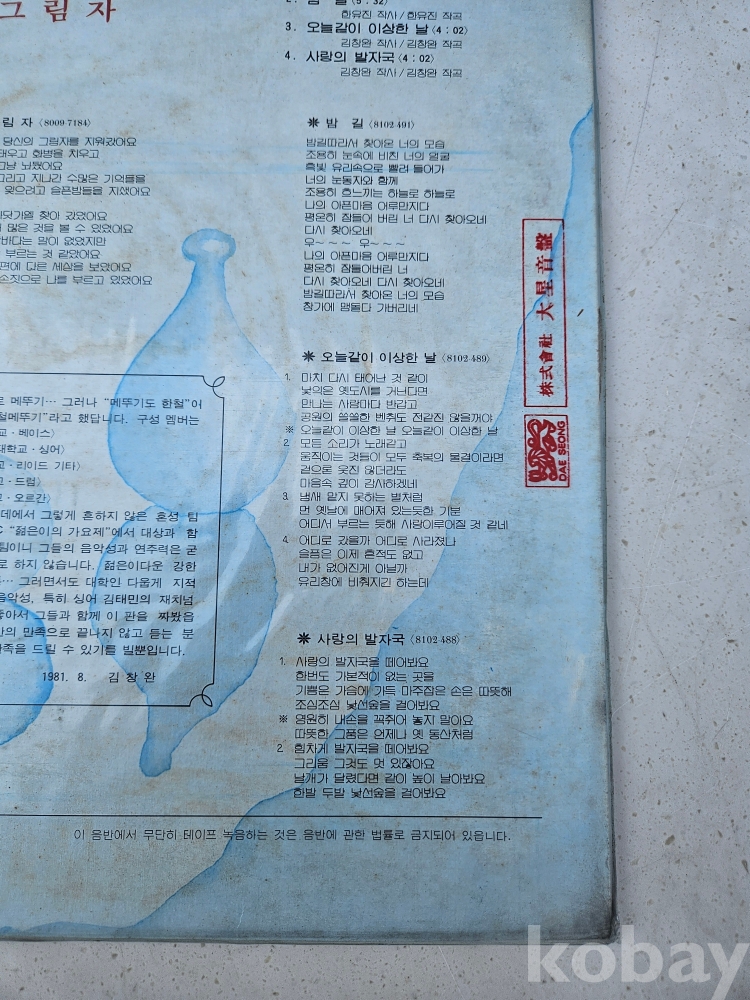 그림자
2. 밤 길 〈5:32〉
한유진 작사/한유진 작곡
3. 오늘같이 이상한 날 〈4:02〉
김창완 작사/김창완 작곡
4. 사랑의 발자국 〈4:02〉
김창완 작사/김창완 작곡
림 자 〈8009·7184〉
당신의 그림자를 지워왔어요
태우고 화병을 치우고
그냥 놔뒀어요
그리고 지나간 수많은 기억들을
맞으려고 슬픈밤들을 지샜어요
찾아 갔었어요
많은 것을 볼 수 있었어요
바다는 말이 없었지만
부르는 것 같았어요
다른 세상을 보았어요
손짓으로 나를 부르고 있었어요
로 메뚜기… 그러나 “메뚜기도 한철”이
철메뚜기”라고 했답니다. 구성 멤버는
교·베이스〉
대학교·싱어〉
교·리이드 기타〉
고·드럼〉
고·오르간〉
데에서 그렇게 흔하지 않은 혼성 팀
C “젊은이의 가요제”에서 대상과 함
팀이니 그들의 음악성과 연주력은 굳
로 하지 않습니다. 젊은이다운 강한
… 그러면서도 대학인 다웁게 지적
음악성, 특히 싱어 김태민의 재치넘
좋아서 그들과 함께 이 판을 짜봤읍
만의 만족으로 끝나지 않고 듣는 분
족을 드릴 수 있기를 빌뿐입니다.
1981. 8. 김 창 완
✳ 밤 길 〈8102·491〉
밤길따라서 찾아온 너의 모습
조용히 눈속에 비친 너의 얼굴
흑빛 유리속으로 빨려 들어가
너의 눈동자와 함께
조용히 흐느끼는 하늘로 하늘로
나의 아픈마음 어루만지다
평온히 잠들어 버린 너 다시 찾아오네
다시 찾아오네
우~~~ 우~~~
나의 아픈마음 어루만지다
평온히 잠들어버린 너
다시 찾아오네 다시 찾아오네
밤길따라서 찾아온 너의 모습
창가에 맴돌다 가버리네
✳ 오늘같이 이상한 날 〈8102·489〉
1. 마치 다시 태어난 것 같이
낯익은 옛도시를 거닌다면
만나는 사람마다 반갑고
공원의 쓸쓸한 벤취도 전같진 않을꺼야
※ 오늘같이 이상한 날 오늘같이 이상한 날
2. 모든 소리가 노래같고
움직이는 것들이 모두 축복의 물결이라면
겉으론 웃진 않더라도
마음속 깊이 감사하겠네
3. 냄새 맡지 못하는 벌처럼
먼 옛날에 매어져 있는듯한 기분
어디서 부르는 듯해 사랑이루어질 것 같네
4. 어디로 갔을까 어디로 사라졌나
슬픔은 이제 흔적도 없고
내가 없어진게 아닐까
유리창에 비춰지긴 하는데
✳ 사랑의 발자국 〈8102·488〉
1. 사랑의 발자국을 떼어봐요
한번도 가본적이 없는 곳을
기쁨은 가슴에 가득 마주잡은 손은 따뜻해
조심조심 낯선숲을 걸어봐요
※ 영원히 내손을 꼭쥐어 놓지 말아요
따뜻한 그품은 언제나 옛 동산처럼
2. 힘차게 발자국을 떼어봐요
그리움 그것도 멋 있잖아요
날개가 달렸다면 같이 높이 날아봐요
한발 두발 낯선숲을 걸어봐요
株式會社 大星音盤
DAE SEONG
이 음반에서 무단히 테이프 녹음하는 것은 음반에 관한 법률로 금지되어 있읍니다.
kobay